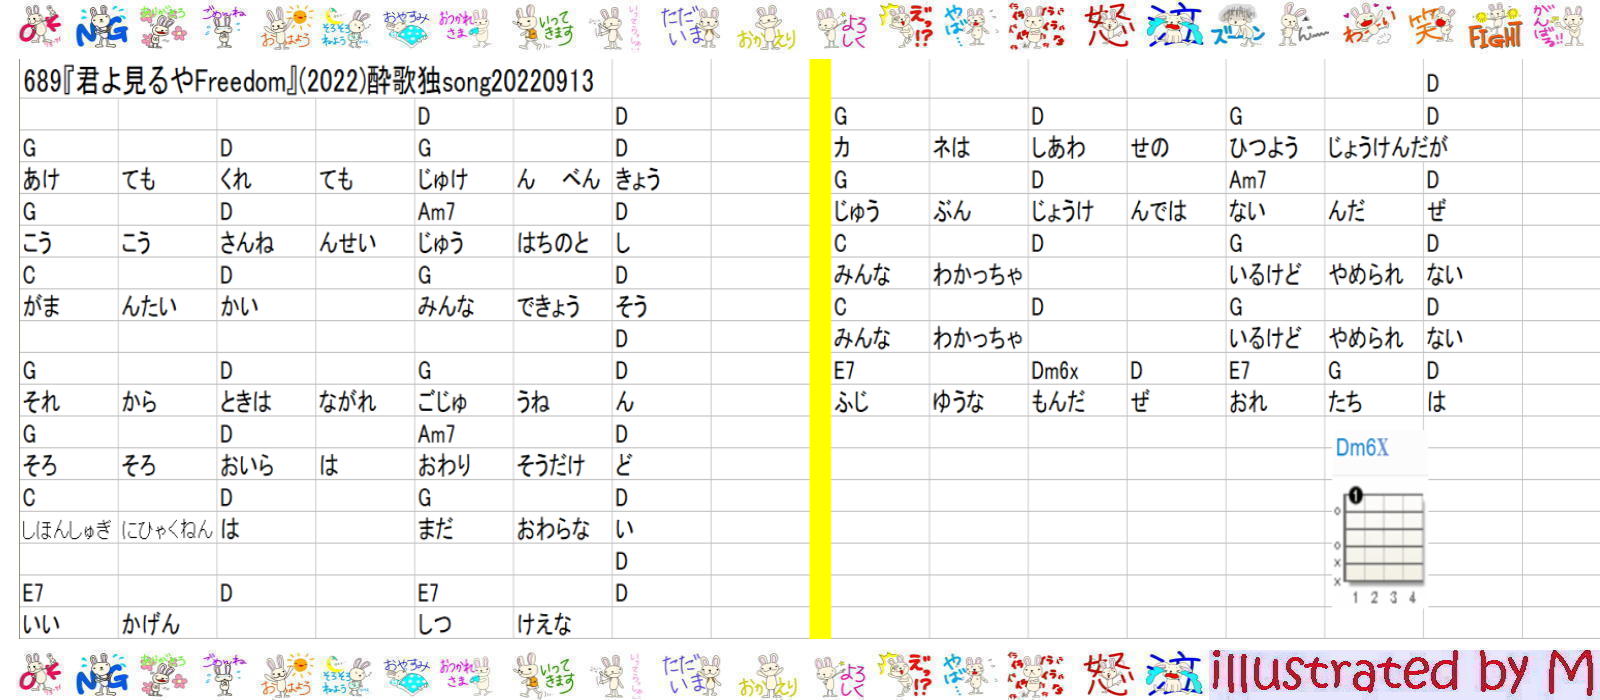 OK NG ありがとう ごめんね おはよう そろそろねよう おやすみ おつかれさま いってきます いってらっしゃい ただいま おかえり よろしく えっ!? やば… イライライライラ 怒 泣 ズーン わーい 笑 FIGHT がんばる!!
689『君よ見るやFreedom』(2022)酔歌独song20220913
D D
G D G D
あけ ても くれ ても じゅけ ん べん きょう
G D Am7 D
こう こう さんね んせい じゅう はちのと し
C D G D
がま んたい かい みんな できょう そう
D
G D G D
それ から ときは ながれ ごじゅ うね ん
G D Am7 D
そろ そろ おいら は おわり そうだけ ど
C D G D
しほんしゅぎ にひゃくねん は まだ おわらな い
D
E7 D E7 D
いい かげん しつ けえな
D
G D G D
カ ネは しあわ せの ひつよう じょうけんだが
G D Am7 D
じゅう ぶん じょうけ んでは ない んだ ぜ
C D G D
みんな わかっちゃ いるけど やめられ ない
C D G D
みんな わかっちゃ いるけど やめられ ない
E7 Dm6x D E7 G D
ふじ ゆうな もんだ ぜ おれ たち は
Dm6X
1
o
o
x
x
1 2 3 4
OK NG ありがとう ごめんね おはよう そろそろねよう おやすみ おつかれさま いってきます いってらっしゃい ただいま おかえり よろしく えっ!? やば… イライライライラ 怒 泣 illustrated by M